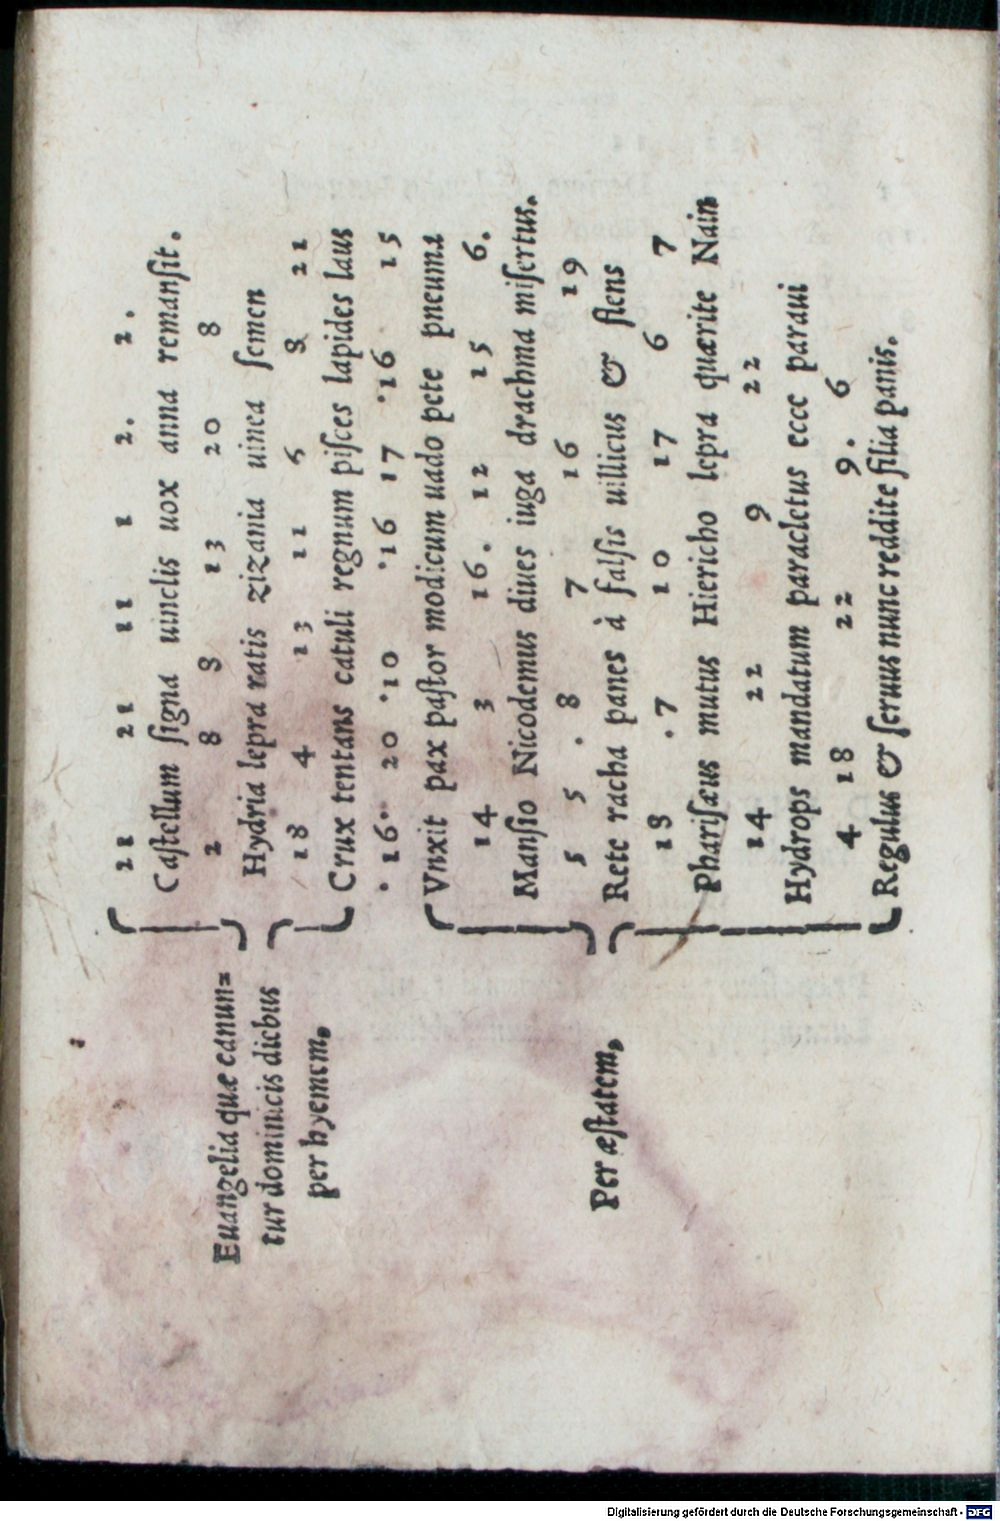 Euangelia quæ canun=
tur dominicis diebus
per hyemem,
21 21 11 1 2. 2.
Caſtellum ſigna uinclis uox anna remanſit.
2 8 8 13 20 8
Hydria lepra ratis zizania uinea ſemen
18 4 13 11 5 8 21
Crux tentans catuli regnum piſces lapides laus
Per æſtatem,
• 16•• 20 •10 •16 17 •16 15
Vnxit pax paſtor modicum uado pete pneuma
14 3 16. 12 15 6.
Manſio Nicodemus diues iuga drachma miſertus.
5 5 . 8 7 16 19
Rete racha panes à falſis uillicus & flens
18 . 7 10 17 6 7
Phariſæus mutus Hiericho lepra quærite Nain
14 22 9 22
Hydrops mandatum paracletus ecce paraui
4 18 22 9. 6
Regulus & ſeruus nunc reddite filia panis.
Digitalisierung gefördert durch die Deutsche Forschungsgemeinschaft - DFG